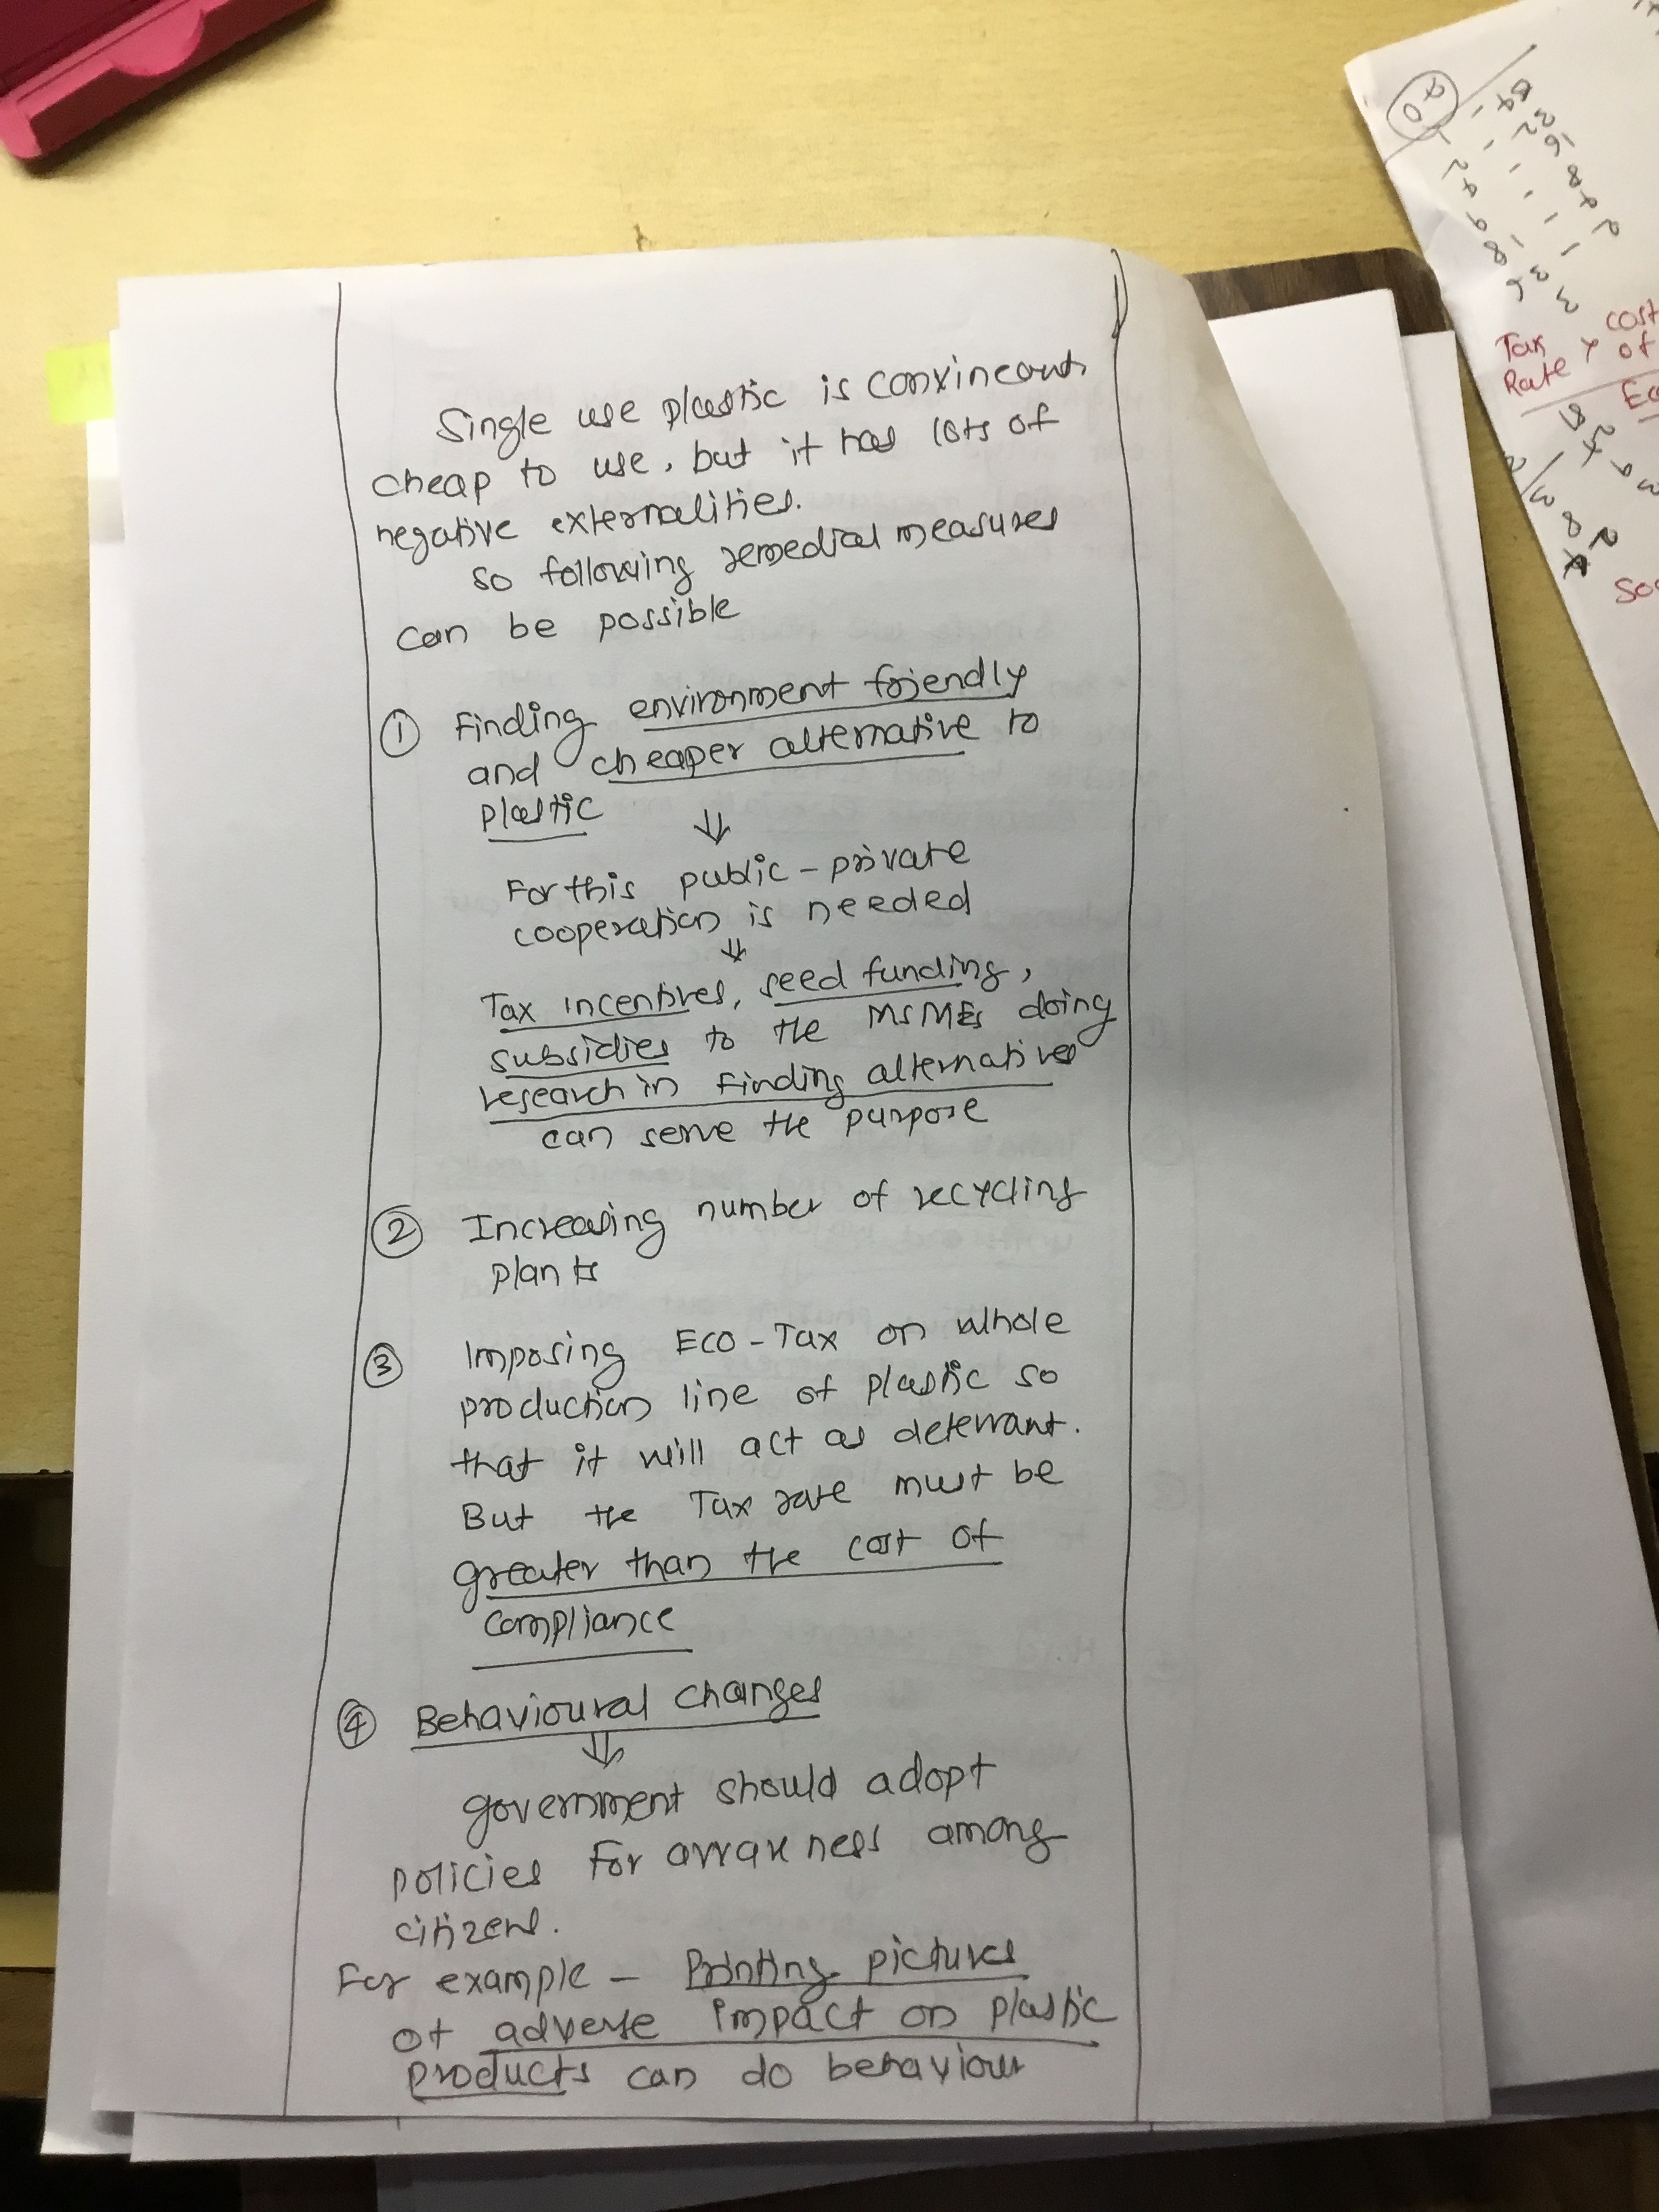 Single use plastic is convineant
cheap to use, but it has lots of
negative externalities.
so following remedial measures
can be possible
① Finding environment friendly
and cheaper alternative to
plastic
⇓
For this public - private
cooperation is needed
⇓
Tax incentives, seed funding,
subsidies to the MSMEs doing
research in finding alternatives
can serve the purpose
② Increasing number of recycling
plants
③ Imposing Eco - Tax on whole
production line of plastic so
that it will act as deterrant.
But the Tax rate must be
greater than the cost of
compliance
④ Behavioural changes
⇓
government should adopt
policies for awareness among
citizens.
For example - Printing pictures
of adverse impact on plastic
products can do behaviour
Tax
Rate
cost
of